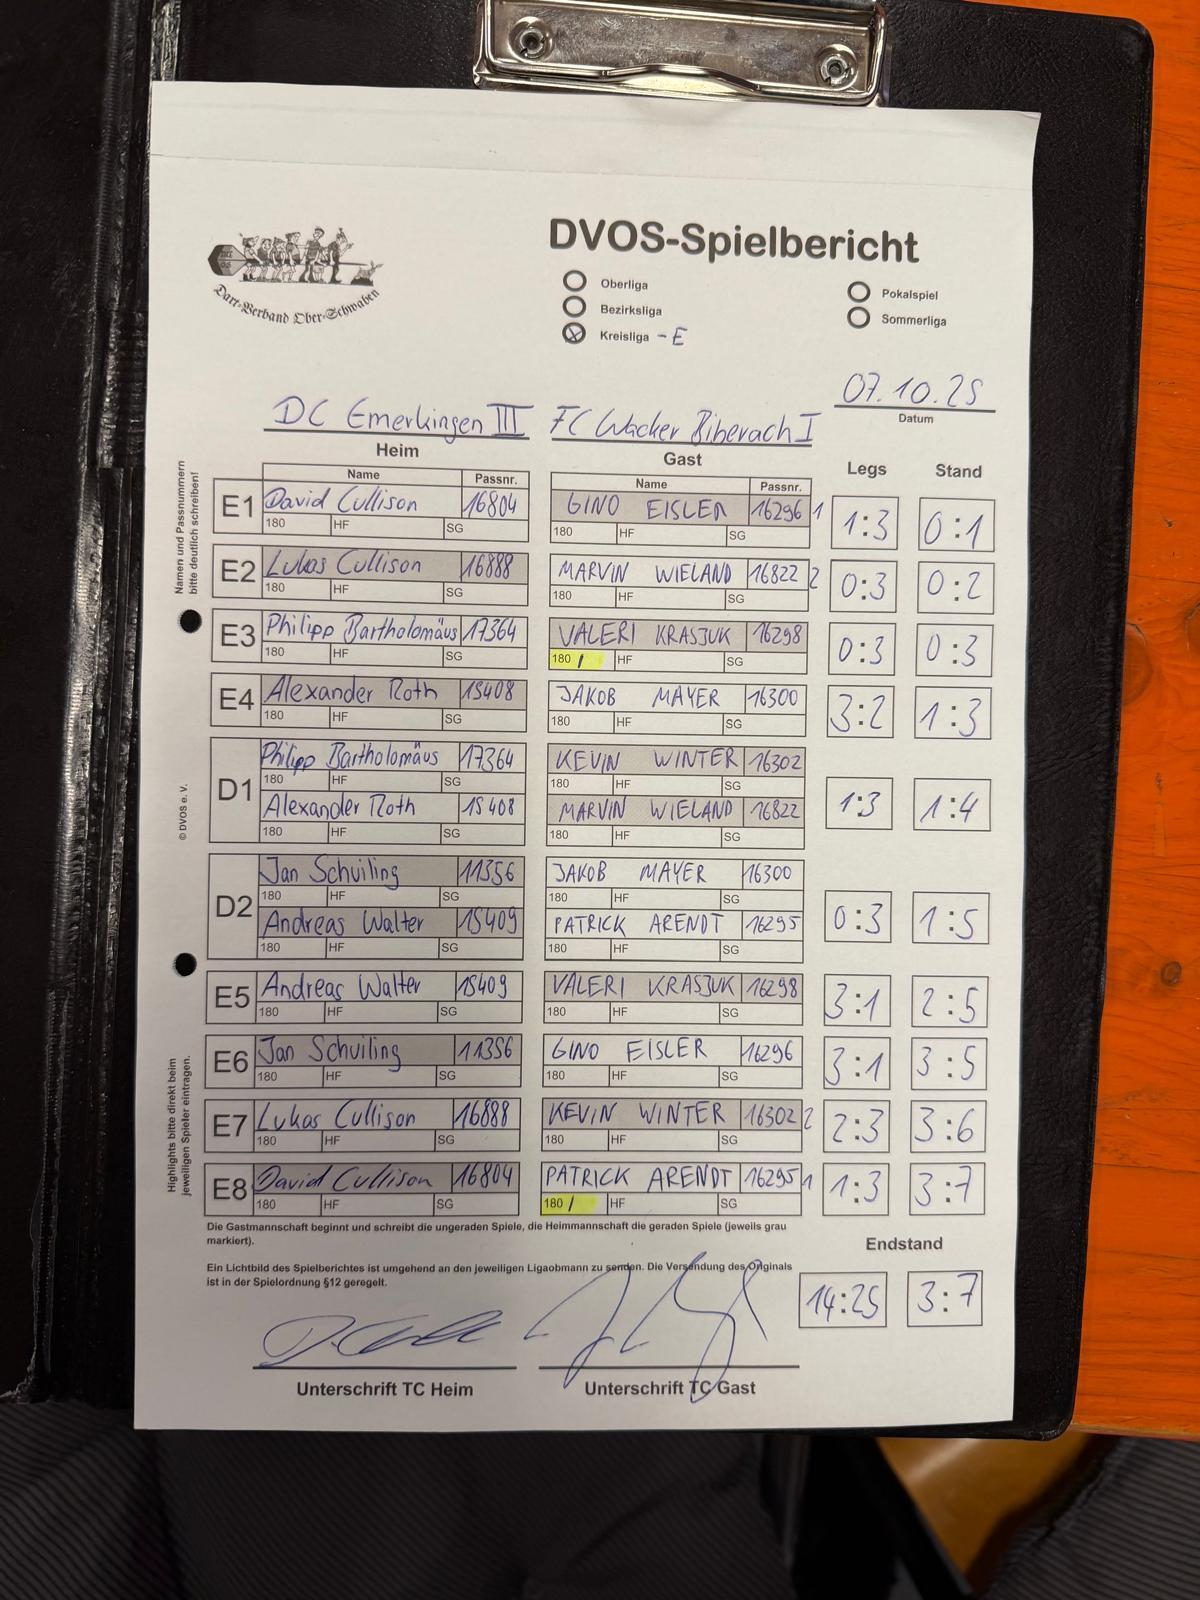 Dart-Verband Ober-Schwaben
DVOS-Spielbericht
Oberliga
Bezirksliga
Kreisliga - E
Pokalspiel
Sommerliga
07.10.25
Datum
DC Emerkingen III FC Wacker Biberach I
Heim Gast Legs Stand
Name Passnr. Name Passnr.
Namen und Passnummern
bitte deutlich schreiben!
E1 David Cullison 16804 GINO EISLER 16296 1 1:3 0:1
180 HF SG 180 HF SG
E2 Lukas Cullison 16888 MARVIN WIELAND 16822 2 0:3 0:2
180 HF SG 180 HF SG
E3 Philipp Bartholomäus 17364 VALERI KRASJUK 16298 0:3 0:3
180 HF SG 180 / HF SG
E4 Alexander Roth 15408 JAKOB MAYER 16300 3:2 1:3
180 HF SG 180 HF SG
D1 Philipp Bartholomäus 17364 KEVIN WINTER 16302 1:3 1:4
180 HF SG 180 HF SG
Alexander Roth 15408 MARVIN WIELAND 16822
180 HF SG 180 HF SG
© DVOS e. V.
D2 Jan Schuiling 11356 JAKOB MAYER 16300 0:3 1:5
180 HF SG 180 HF SG
Andreas Walter 15409 PATRICK ARENDT 16295
180 HF SG 180 HF SG
E5 Andreas Walter 15409 VALERI KRASJUK 16298 3:1 2:5
180 HF SG 180 HF SG
E6 Jan Schuiling 11356 GINO EISLER 16296 3:1 3:5
180 HF SG 180 HF SG
E7 Lukas Cullison 16888 KEVIN WINTER 16302 2 2:3 3:6
180 HF SG 180 HF SG
E8 David Cullison 16804 PATRICK ARENDT 16295 1 1:3 3:7
180 HF SG 180 / HF SG
Highlights bitte direkt beim
jeweiligen Spieler eintragen.
Die Gastmannschaft beginnt und schreibt die ungeraden Spiele, die Heimmannschaft die geraden Spiele (jeweils grau
markiert).
Endstand
Ein Lichtbild des Spielberichtes ist umgehend an den jeweiligen Ligaobmann zu senden. Die Versendung des Originals
ist in der Spielordnung §12 geregelt.
14:25 3:7
Unterschrift TC Heim Unterschrift TC Gast